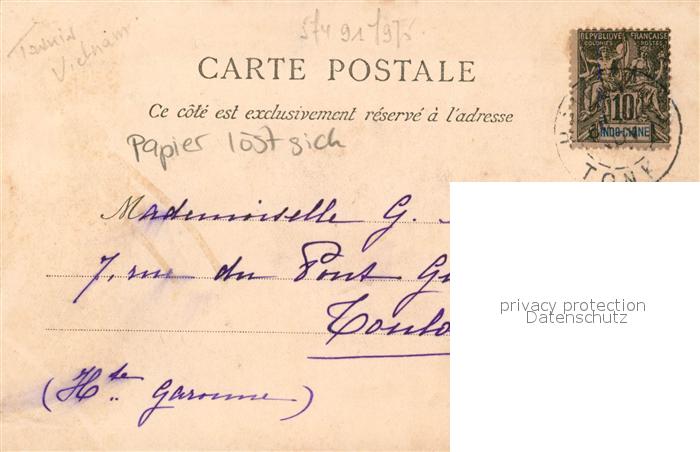 Vietnam
CARTE POSTALE
Ce côté est exclusivement réservé à l'adresse
Papier löst sich
REPUBLIQUE FRANÇAISE
COLONIES POSTES
10
INDO-CHINE
TONK
Mademoiselle G.
7, rue du Pont Gu
Toulo
(Hte Garonne)
privacy protection
Datenschutz